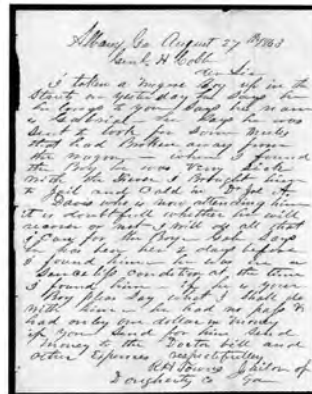 Albany Ga August 27th 1863
Genl H Cobb
Dr Sir
I taken a negroe Boy up in the
Streets on yesterday he Says that
he belongs to you Says his name
is Gabriel he Says he was
Sent to look for Some mules
that had Broken away from
the wagon when I found
the Boy he was very Sick
with the I brought him
to Jail and Cald in Dr
Davis who is now attending him
it is doubtfull whether he will
recover or not I will do all that
I can for the Boy he Says
he has ben her 2 days before
I found him he was in a
condition at the time
I found him if he is your
Boy pleas Say what I Shall do
with him he had no pass &
had only one dollar in money
if you Send for him Send
money to the Doctor bill and
other Expenses respectfully
Jailor of
Dougherty Co Ga